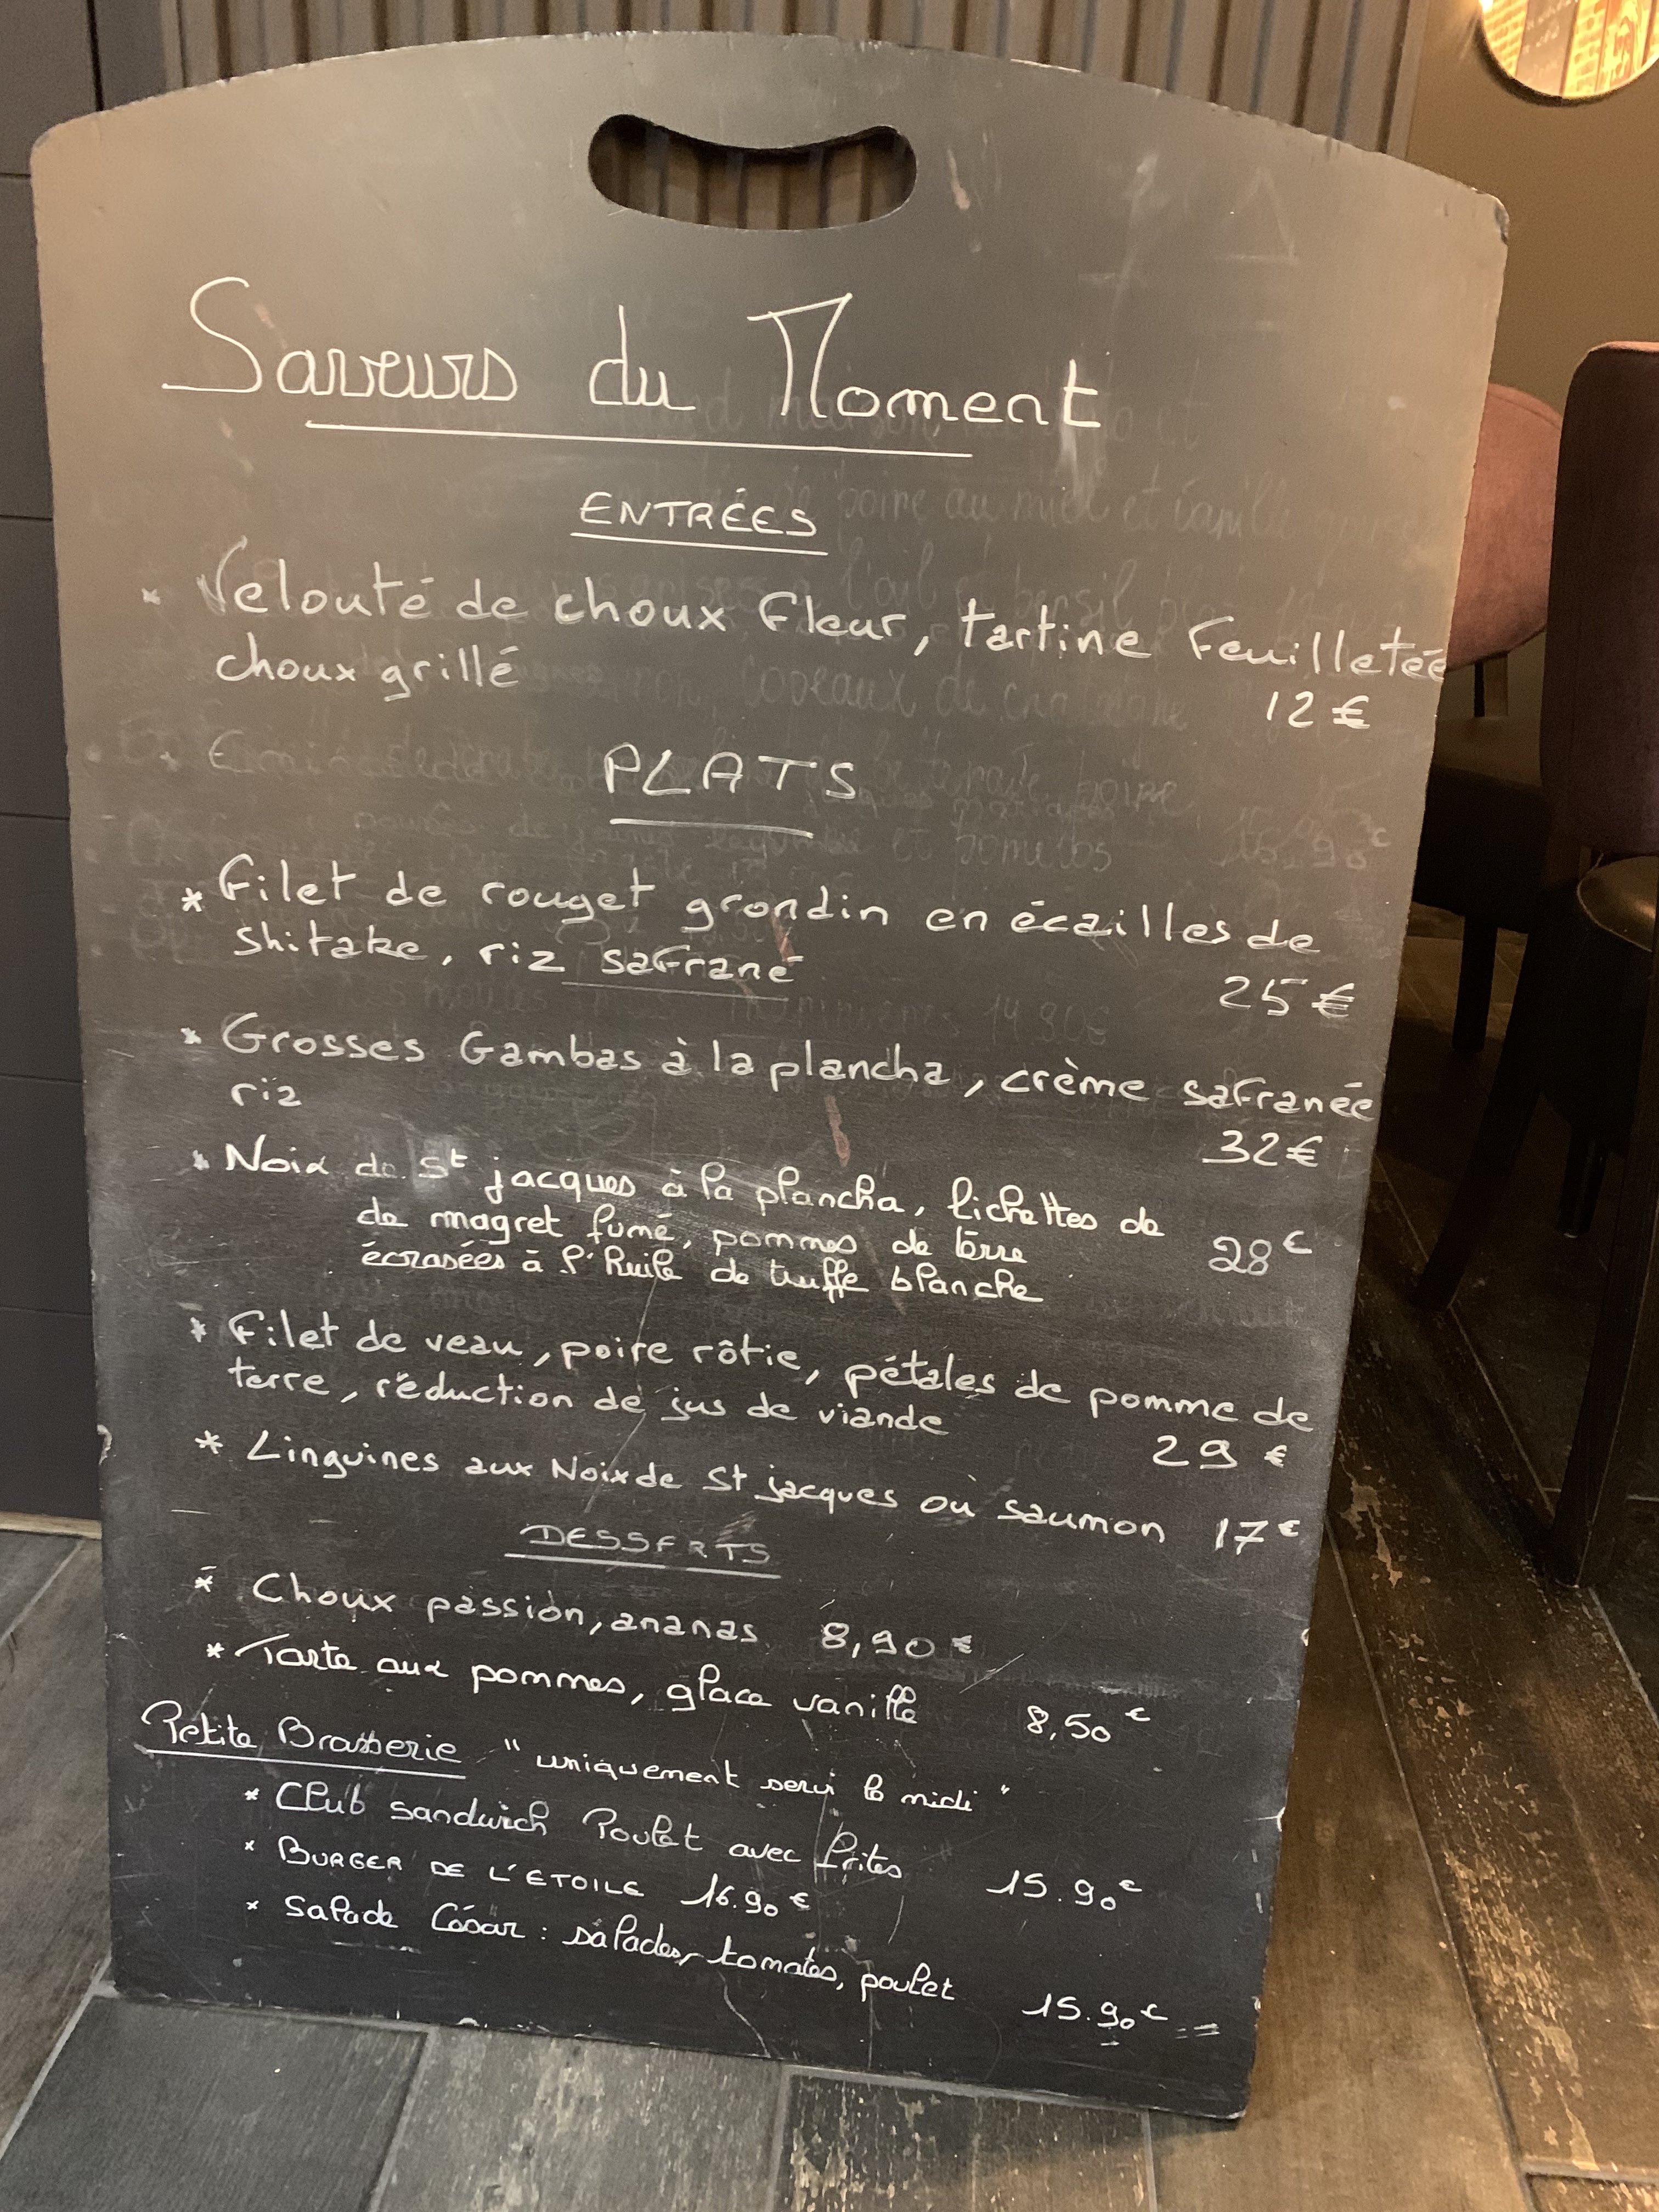 Saveurs du Moment
ENTRÉES
* Velouté de choux fleur, tartine feuilletée
choux grillé
12 €
PLATS
* Filet de rouget grondin en écailles de
shitake, riz safrané
25 €
* Grosses Gambas à la plancha, crème safranée
riz
32 €
* Noix de St jacques à la plancha, lichettes de
de magret fumé, pommes de terre 28 €
écrasées à l'huile de truffe blanche
* Filet de veau, poire rôtie, pétales de pomme de
terre, réduction de jus de viande
29 €
* Linguines aux Noix de St jacques ou saumon 17 €
DESSERTS
* Choux passion, ananas 8,90 €
* Tarte aux pommes, glace vanille 8,50 €
Petite Brasserie "uniquement servi le midi"
* Club sandwich Poulet avec frites 15.90 €
* BURGER DE L'ETOILE 16.90 €
* Salade César : salades, tomates, poulet 15.90 €